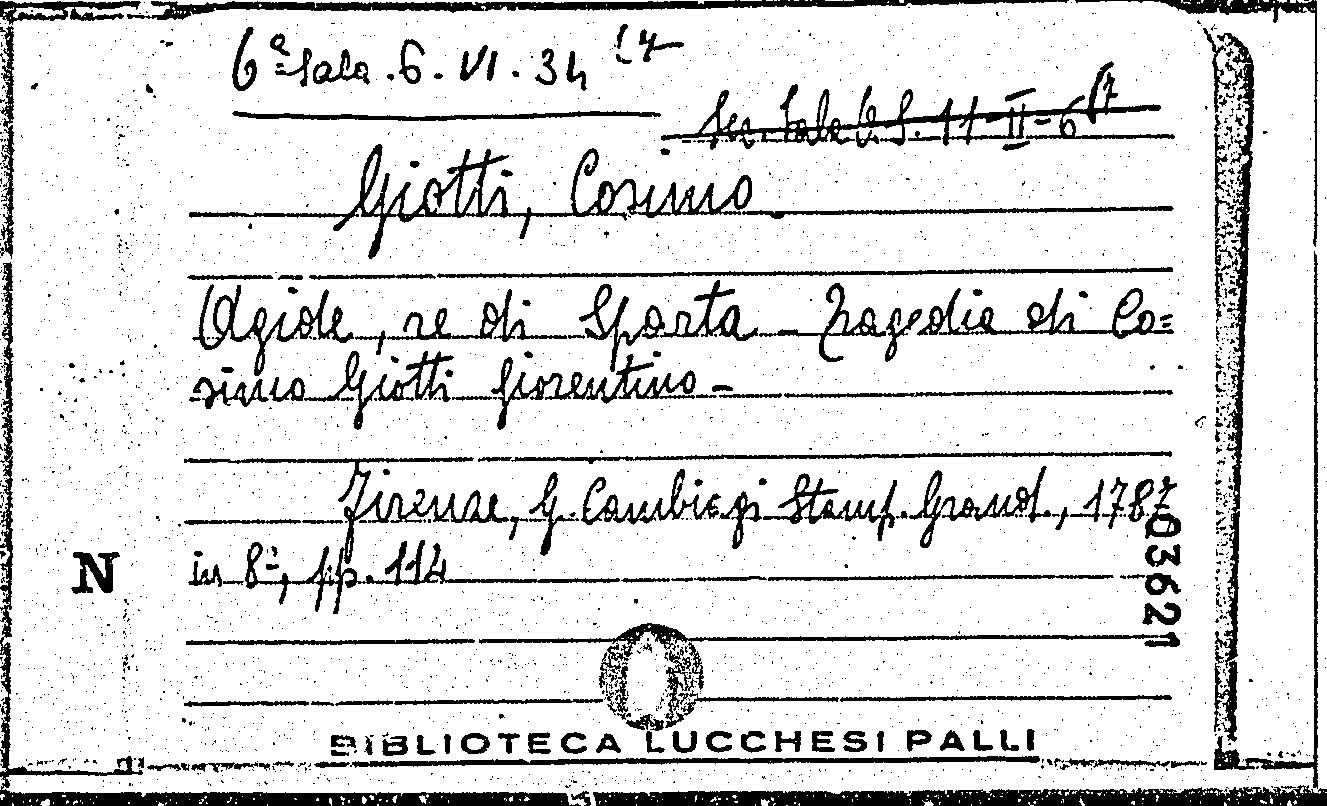 6ª Sala. 6. VI. 34 (4
Sez. Sala C. S. 11-II-6
Giotti, Cosimo
Agide, re di Sparta - Tragedia di Co=
simo Giotti fiorentino -
Firenze, G. Cambiagi Stamp. Grand., 1787
in 8º, pp. 114
N
03621
BIBLIOTECA LUCCHESI PALLI